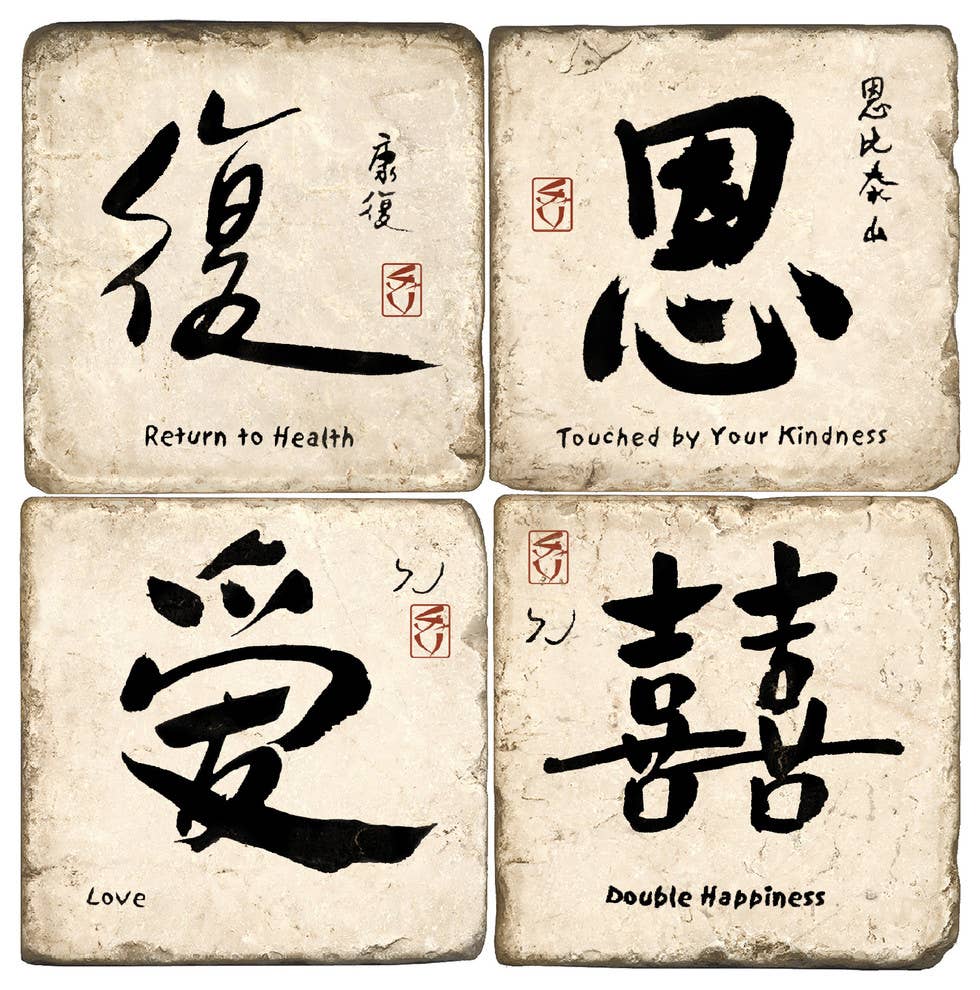 復
康復
Return to Health
恩
恩比泰山
Touched by Your Kindness
愛
Love
囍
Double Happiness